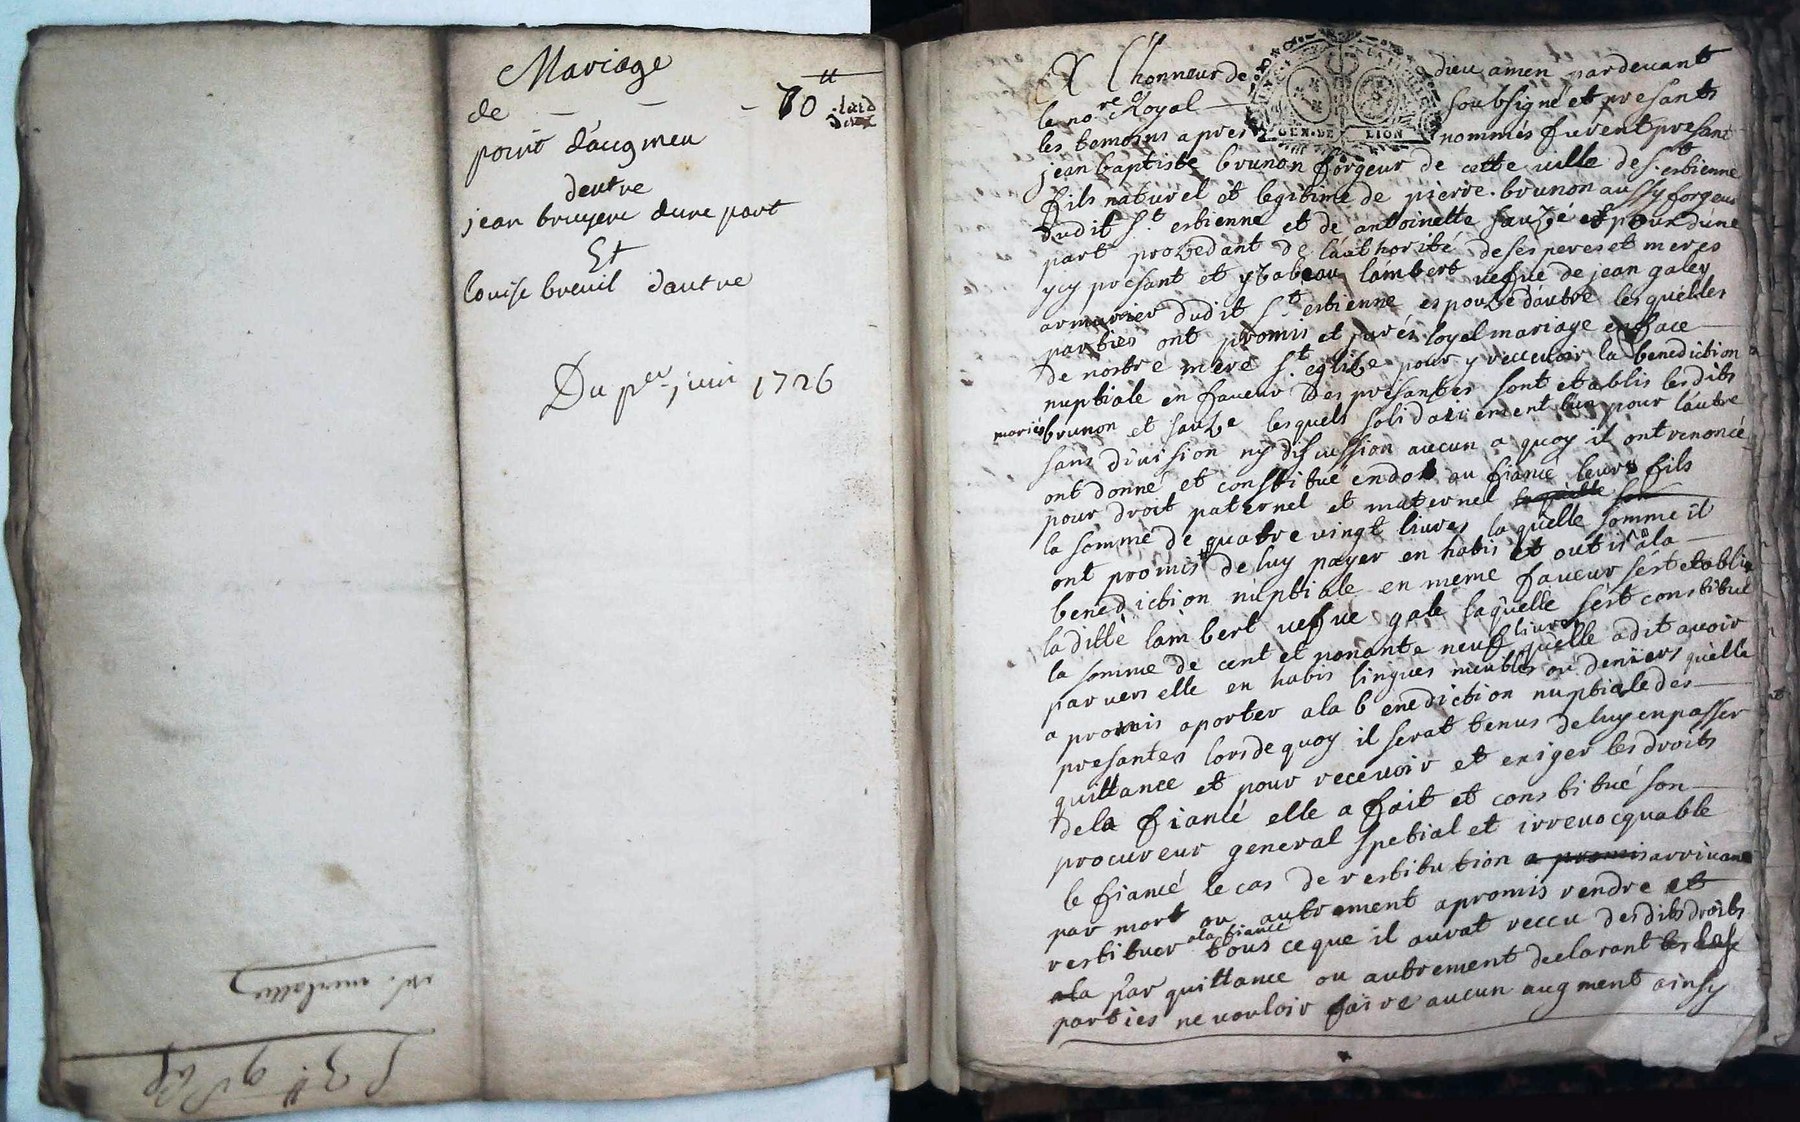 Mariage
de - - 70 ₶
point d'augmen
dentre
jean bruyere dune part
Et
louise breuil dautre
Du per juin 1726
A l'honneur de dieu amen pardevant
le nore Royal soubsigné et presants
les temoins apres nommés furent presant
GEN. DE LION
jean baptiste brunon forgeur de cette ville de st estienne
fils naturel et legitime de pierre brunon aussy forgeur
dudit st estienne et de antoinette sauzé et pour dune
part prozedant de l'authorité de ses peres et meres
ycy présant et yzabeau lambert vefve de jean galey
armurier dudit st estienne espouze dautre lesquelles
parties ont promis et jurés loyel mariage en face
de nostre mere st eglize pour y reccevoir la benediction
nuptiale en faveur des présantes sont etablis lesdits
mariés brunon et sauze lesquels solidairement lun pour lautre
sans division ny discussion aucun a quoy il ont renoncé
ont donné et constitué en dot au fiancé leurs fils
pour droit paternel et maternel laquelle son
la somme de quatre vingt livres laquelle somme il
ont promis de luy payer en habis et outis a la
benediction nuptiale en meme faveur sest etablie
laditte lambert vefve gale laquelle sest constitué
la somme de cent et nonante neuf livres quelle a dit avoir
par vers elle en habis lingues meubles ou deniers quelle
a promis aporter a la benediction nuptiale des
presantes lors de quoy il serat tenus de luy en passer
quittance et pour recevoir et exiger les droits
de la fiancé elle a fait et constitué son
procureur general spetial et irrevocquable
le fiancé le cas de restitution a promis arrivant
par mort ou autrement a promis rendre et
restituer a la fiancé tous ce que il aurat reccu desdits droits
ala par quittance ou autrement declarant les
parties ne vouloir faire aucun augment ainsy